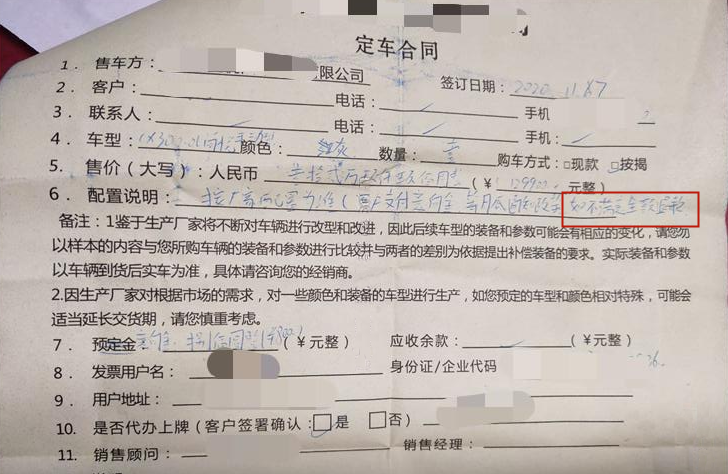 定车合同
1. 售车方：有限公司 签订日期：2020.11.
2. 客户： 电话： 手机
3. 联系人： 电话： 手机：
4. 车型： 颜色： 数量：壹 购车方式：□现款 □按揭
5. 售价（大写）：人民币 （¥ 129900 元整）
6. 配置说明：按厂商配置为准（客户支付意向金 如不满意全款退款
备注：1鉴于生产厂家将不断对车辆进行改型和改进，因此后续车型的装备和参数可能会有相应的变化，请您勿
以样本的内容与您所购车辆的装备和参数进行比较并与两者的差别为依据提出补偿装备的要求。实际装备和参数
以车辆到货后实车为准，具体请咨询您的经销商。
2.因生产厂家对根据市场的需求，对一些颜色和装备的车型进行生产，如您预定的车型和颜色相对特殊，可能会
适当延长交货期，请您慎重考虑。
7. 预定金 （¥元整） 应收余款： （¥元整）
8. 发票用户名： 身份证/企业代码
9. 用户地址：
10. 是否代办上牌（客户签署确认：□是 □否）
11. 销售顾问： 销售经理：